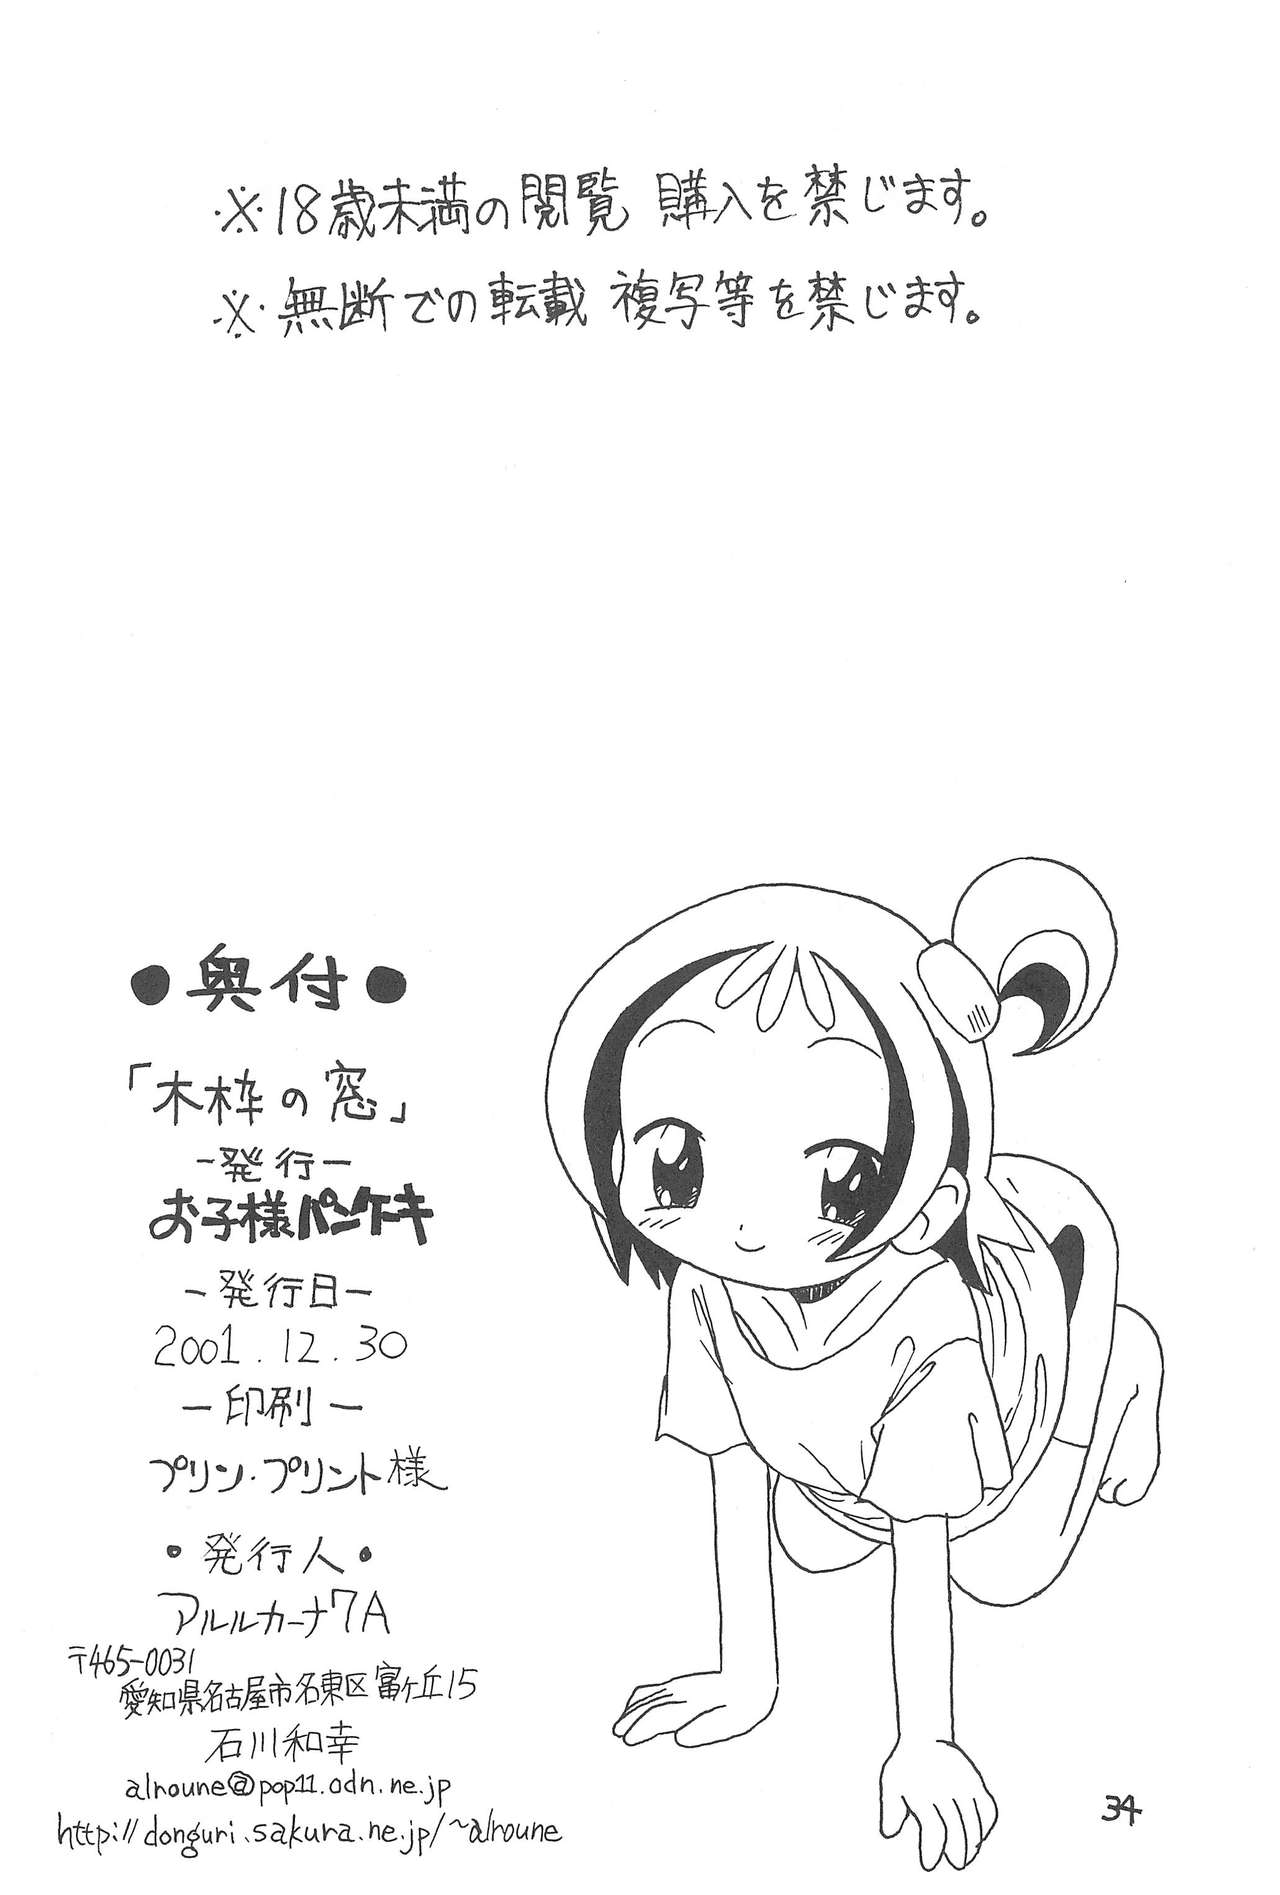 ※18歳未満の閲覧 購入を禁じます。
※無断での転載 複写等を禁じます。
●奥付●
「木枠の窓」
-発行-
お子様パンケーキ
-発行日-
2001.12.30
-印刷-
プリン・プリント様
•発行人•
アルルカーナ7A
〒465-0031
愛知県名古屋市名東区富ケ丘15
石川和幸
alroune@pop11.odn.ne.jp
http://donguri.sakura.ne.jp/~alroune
34